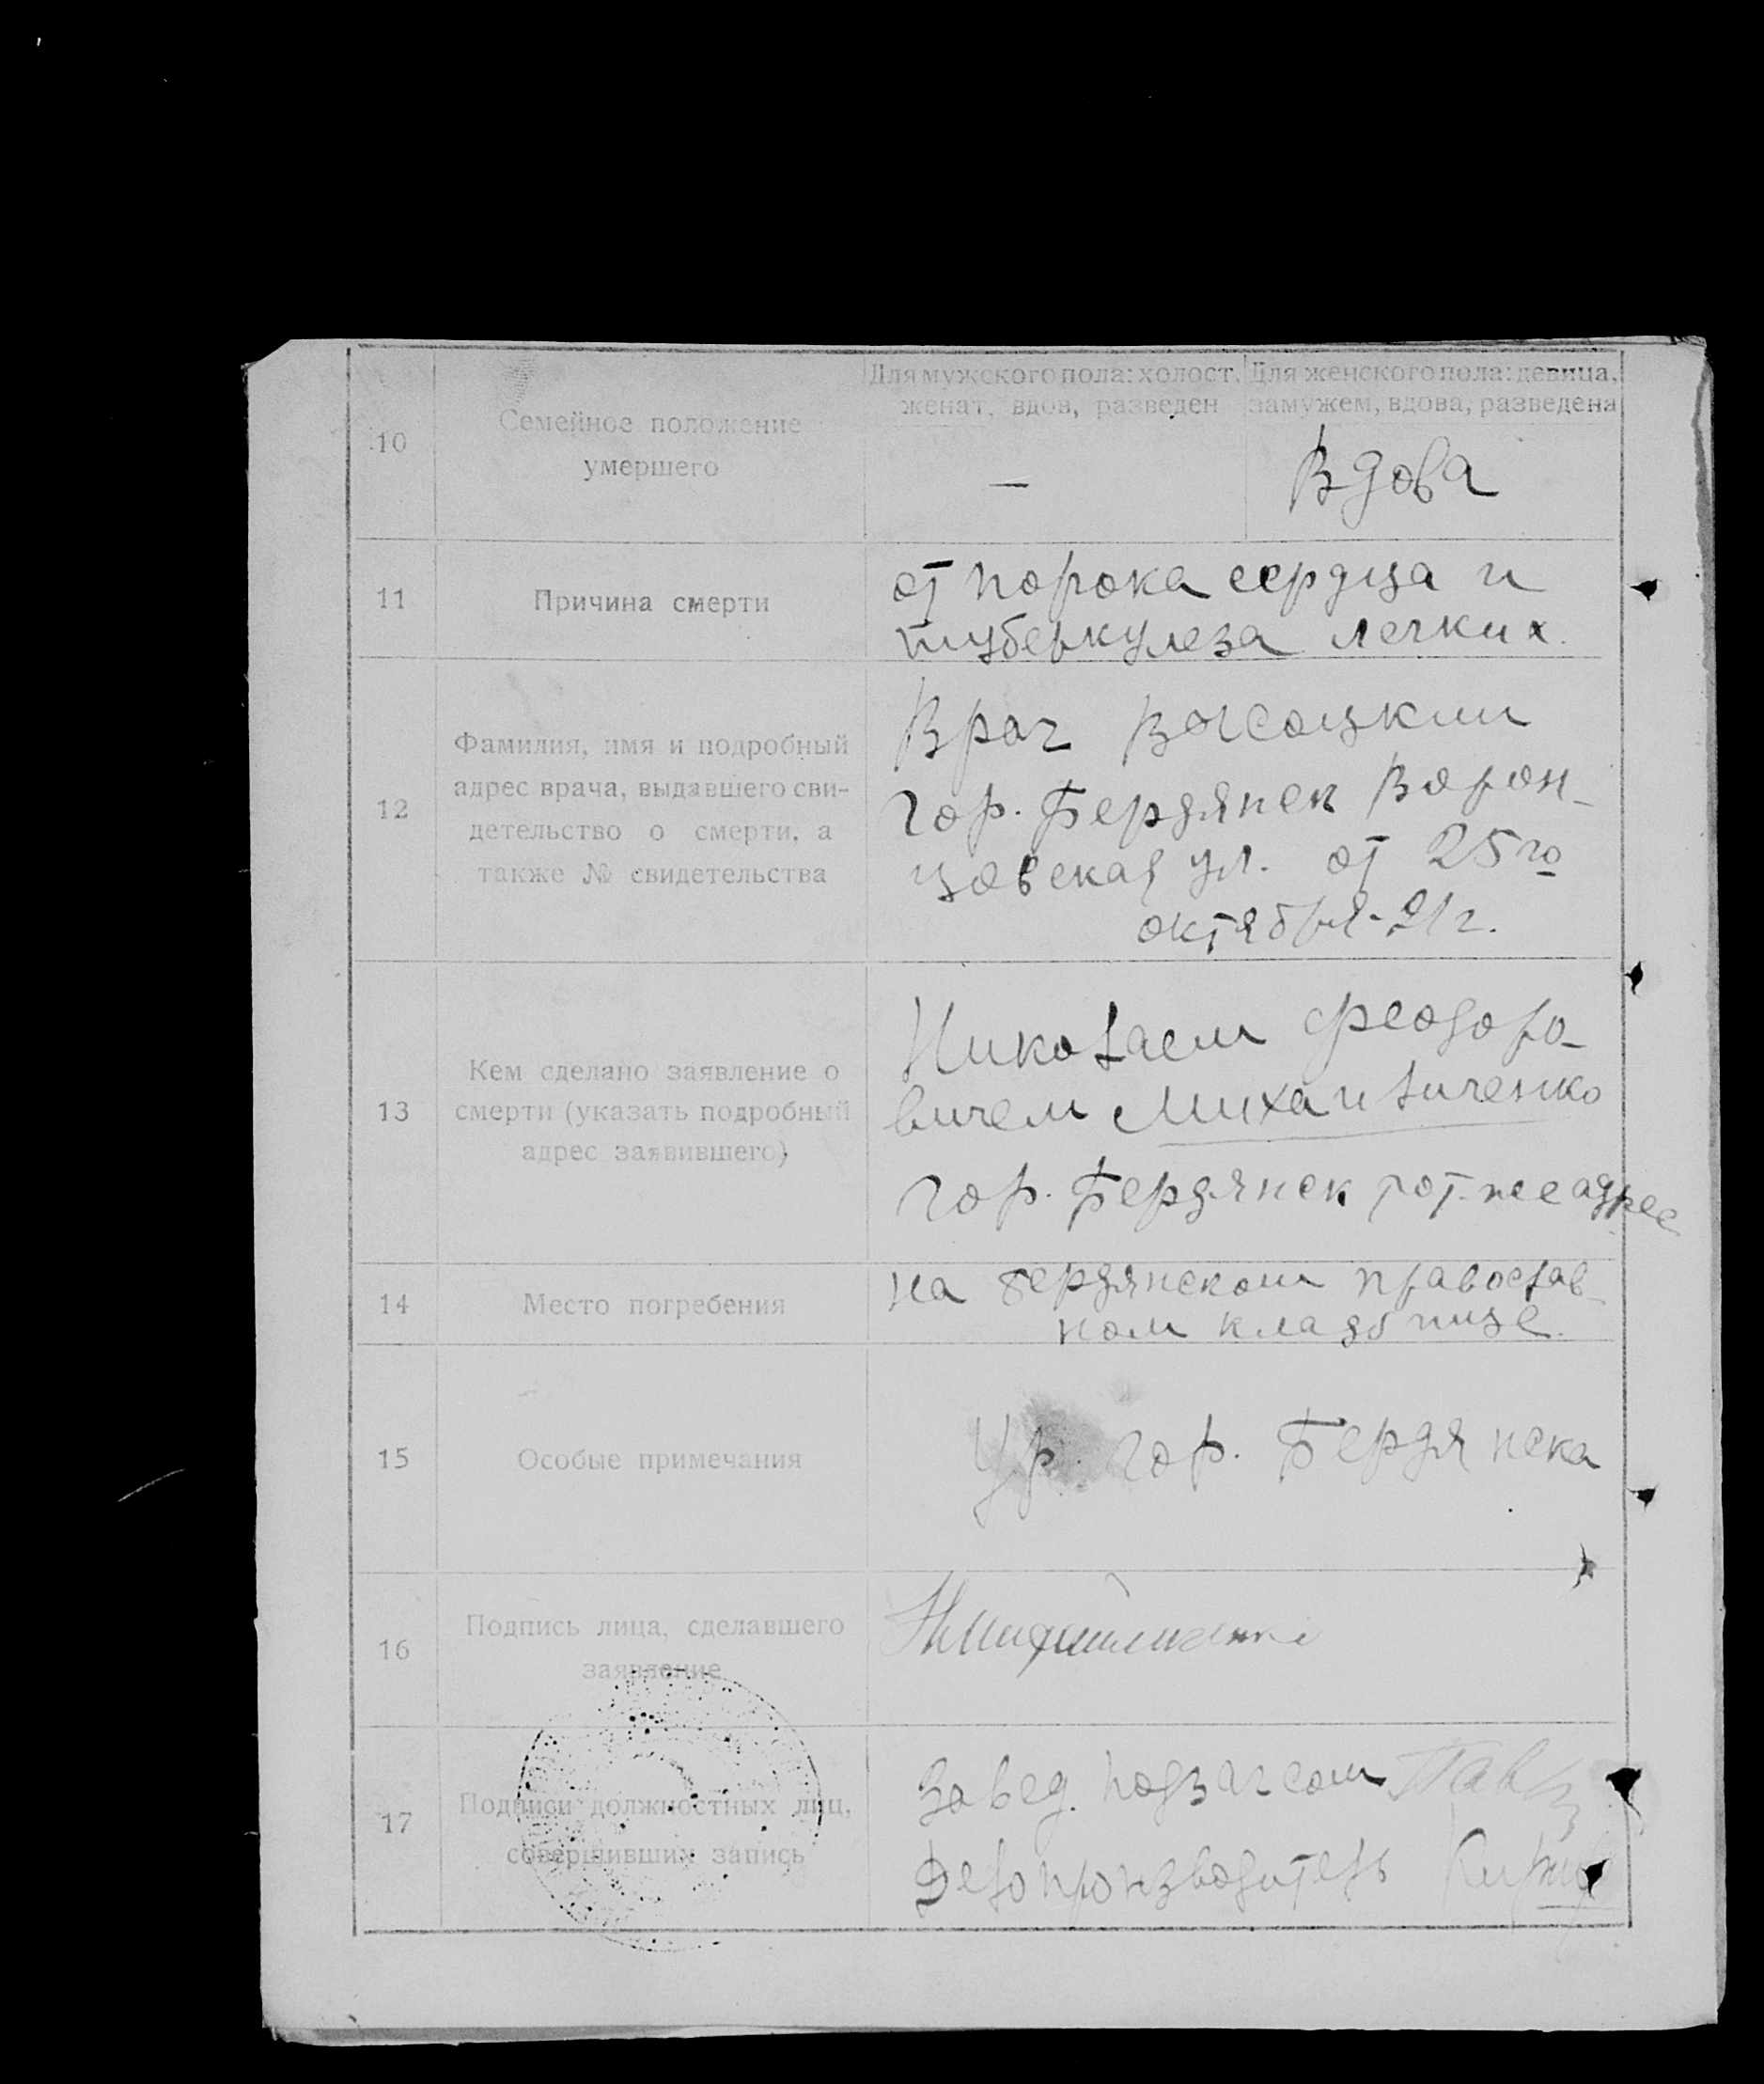 10
Семейное положение
умершего
Для мужского пола: холост,
женат, вдов, разведен
Для женского пола: девица,
замужем, вдова, разведена
—
Вдова
11
Причина смерти
от порока сердца и
туберкулеза легких.
12
Фамилия, имя и подробный
адрес врача, выдавшего сви-
детельство о смерти, а
также № свидетельства
Врач Высоцкий
гор. Бердянск Ворон-
цовская ул. от 25го
октября-21г.
13
Кем сделано заявление о
смерти (указать подробный
адрес заявившего)
Николаем Феодоро-
вичем Михайличенко
гор. Бердянск тот-же адрес
14
Место погребения
на бердянском православ-
ном кладбище.
15
Особые примечания
Ур. гор. Бердянска
16
Подпись лица, сделавшего
заявление
17
Подписи должностных лиц,
совершивших запись
Завед. подзагсом
Делопроизводитель